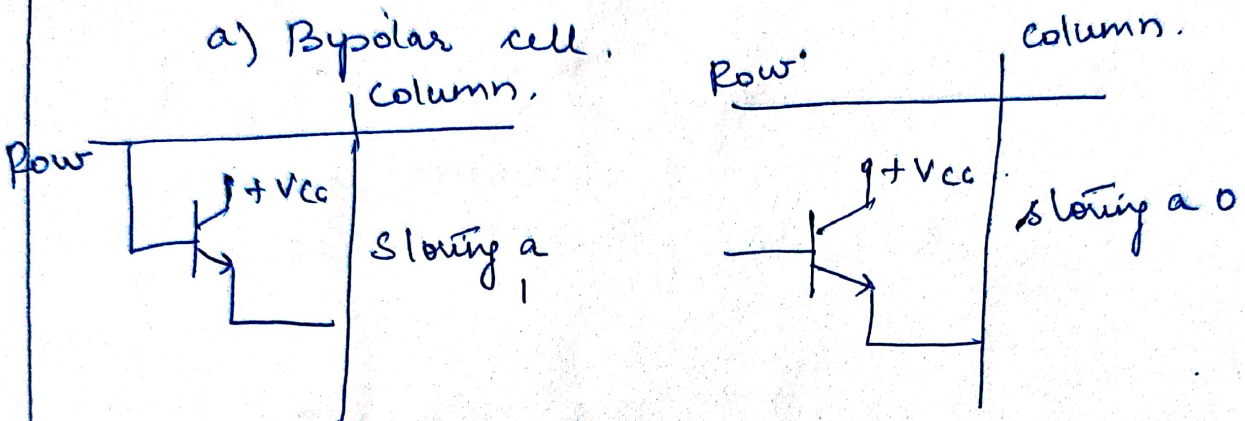 a) Bypolar cell.
column.
Row
+Vcc
Storing a
1
column.
Row
+Vcc
storing a 0